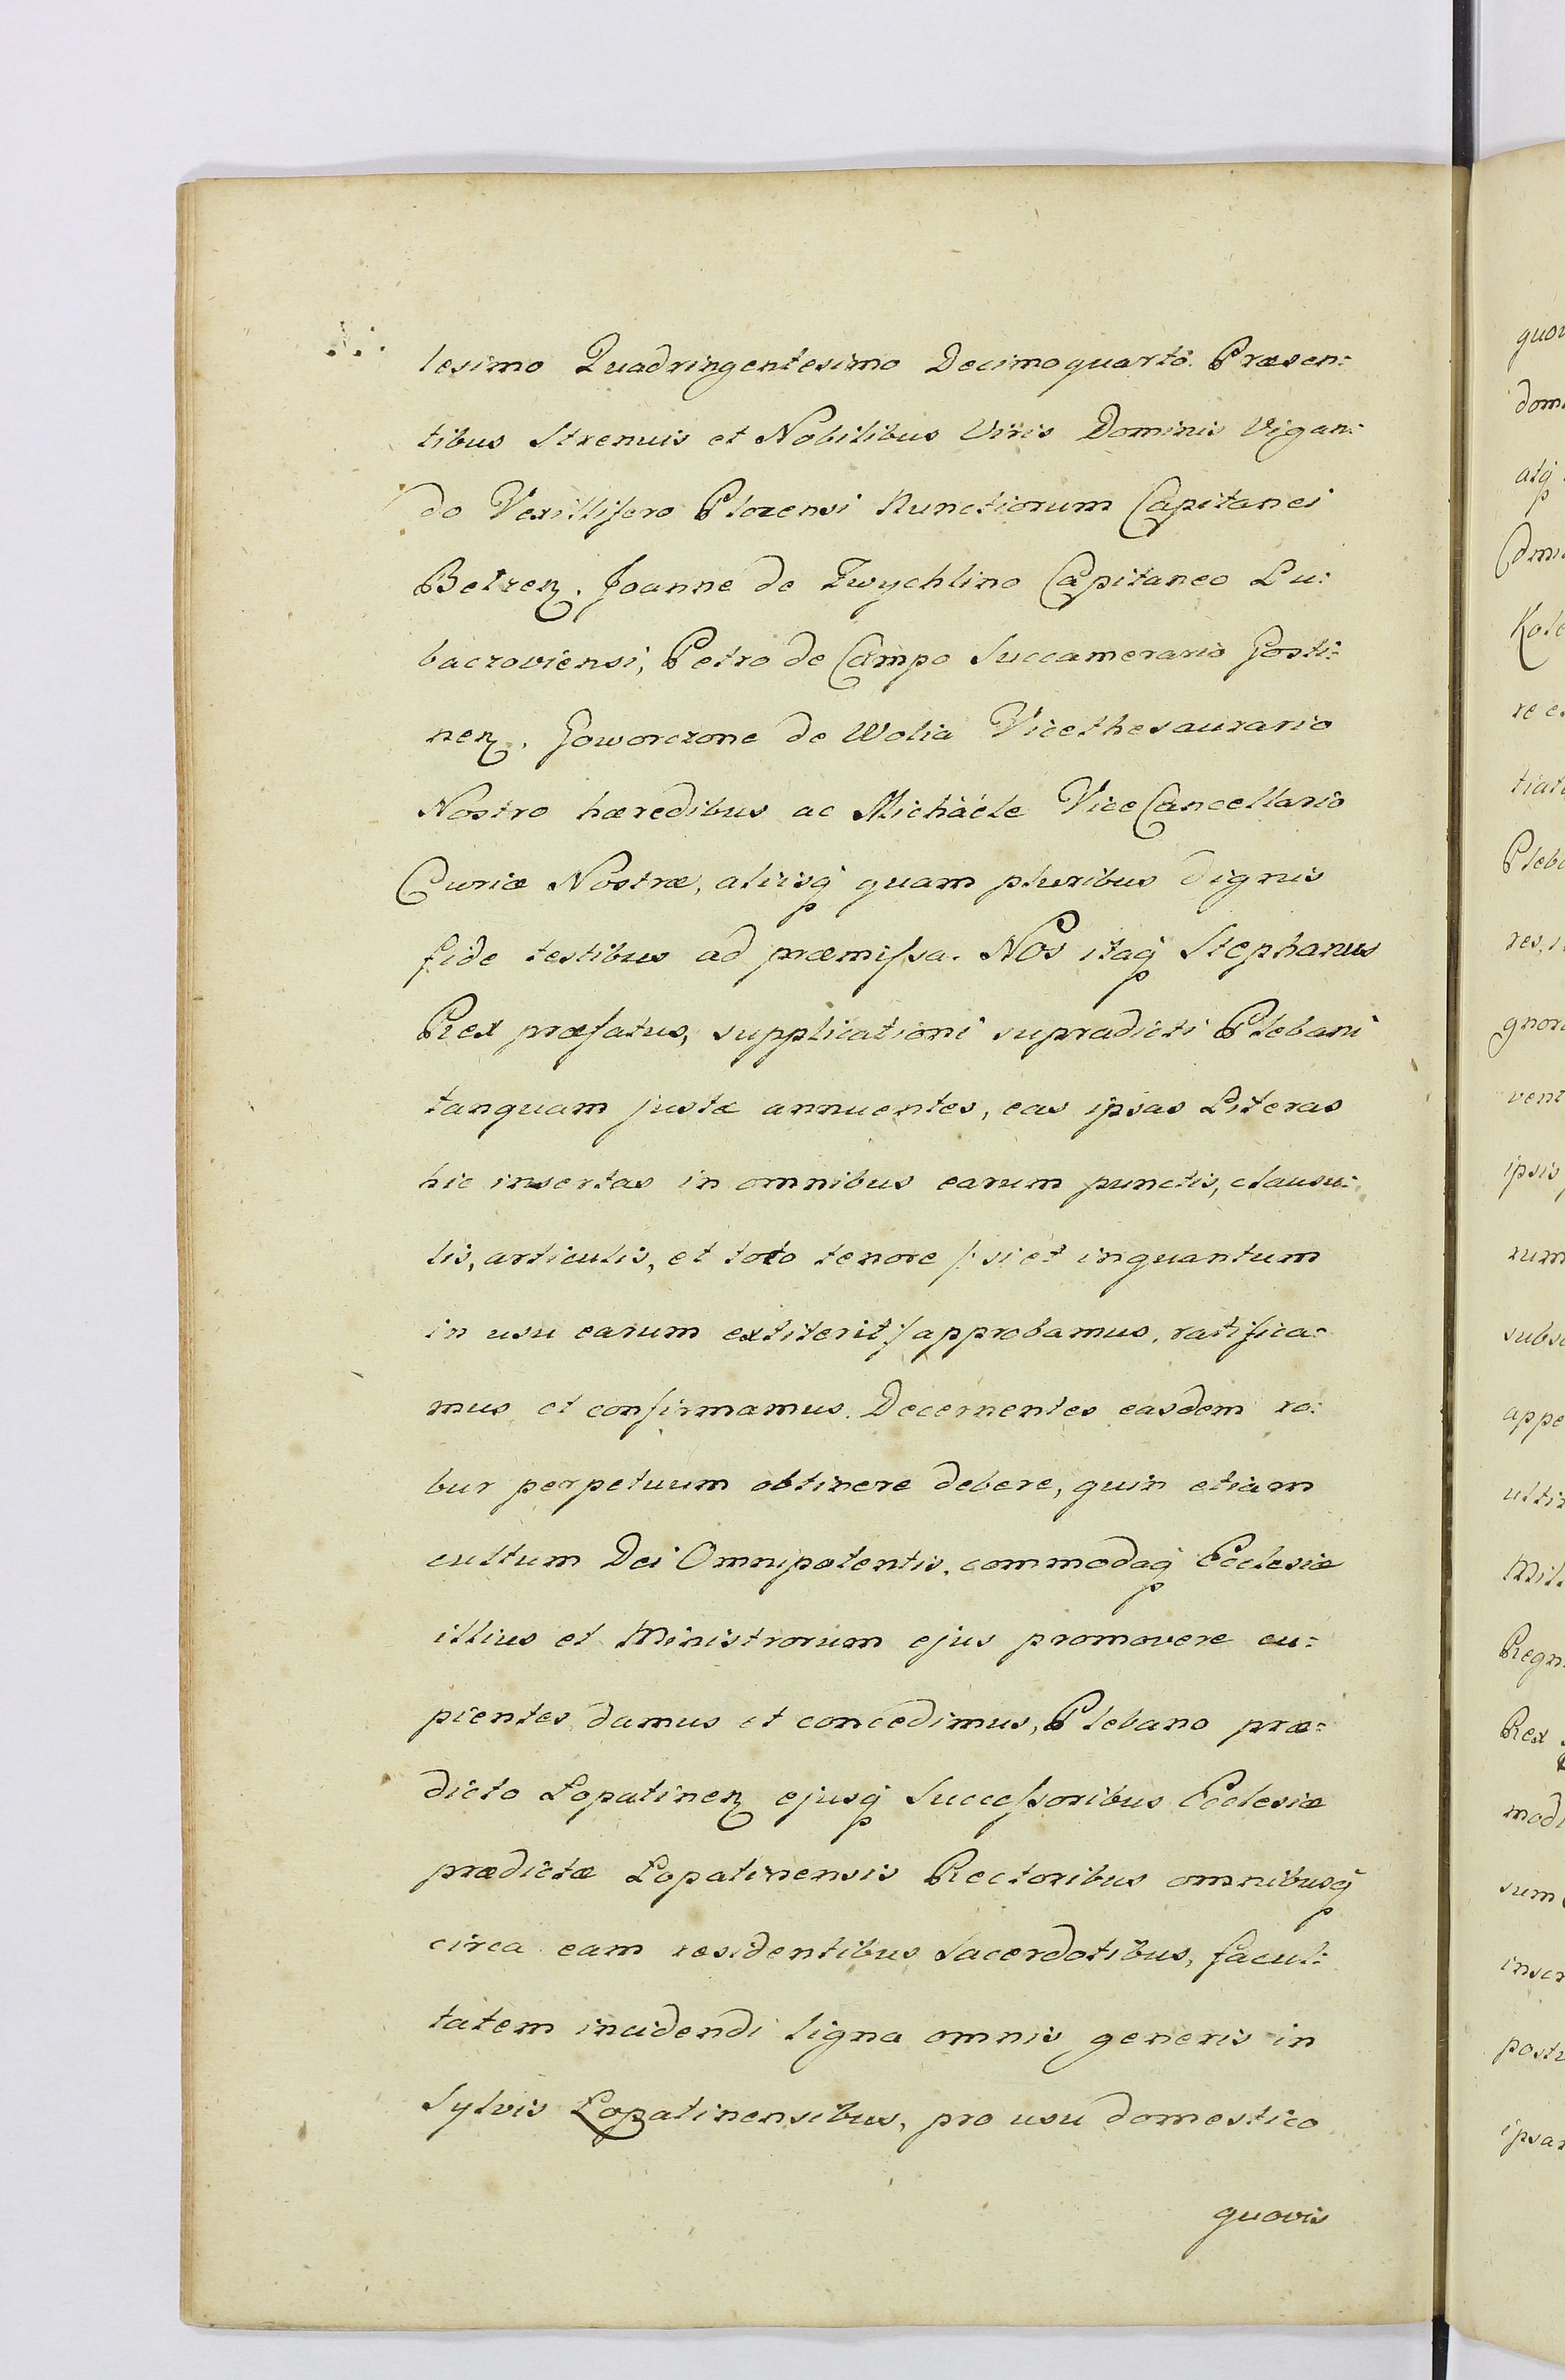 lesimo Quadringentesimo Decimoquarto. Præsen:
tibus Strenuis et Nobilibus Viris Dominis Vigan:
do Vexillifero Plozensi Nunctiorum Capitanei
Belzen. Joanne de Zwychlino Capitaneo Lu:
baczoviensi, Petro de Campo Succamerario Gosti:
nen. Goworczone de Wolia Vicethesaurario
Nostro hæredibus ac Michaele ViceCancellario
Curiæ Nostræ, aliisq quam pluribus dignis
fide testibus ad præmissa. Nos itaq Stephanus
Rex præfatus, supplicationi supradicti Plebani
tanquam justæ annuentes, eas ipsas Literas
hic insertas in omnibus earum punctis, clausu:
lis, articulis, et toto tenore /: si et inquantum
in usu earum extiterit :/ approbamus, ratifica:
mus et confirmamus. Decernentes easdem ro:
bur perpetuum obtinere debere, quin etiam
cultum Dei Omnipotentis, commodaq Ecclesiæ
illius et Ministrorum ejus promovere cu:
pientes damus et concedimus, Plebano præ:
dicto Lopatinen ejusq Successoribus Ecclesiæ
prædictæ Lopatinensis Rectoribus omnibusq
circa eam residentibus Sacerdotibus, facul:
tatem incidendi ligna omnis generis in
Sylvis Lopatinensibus, pro usu domestico
quovis